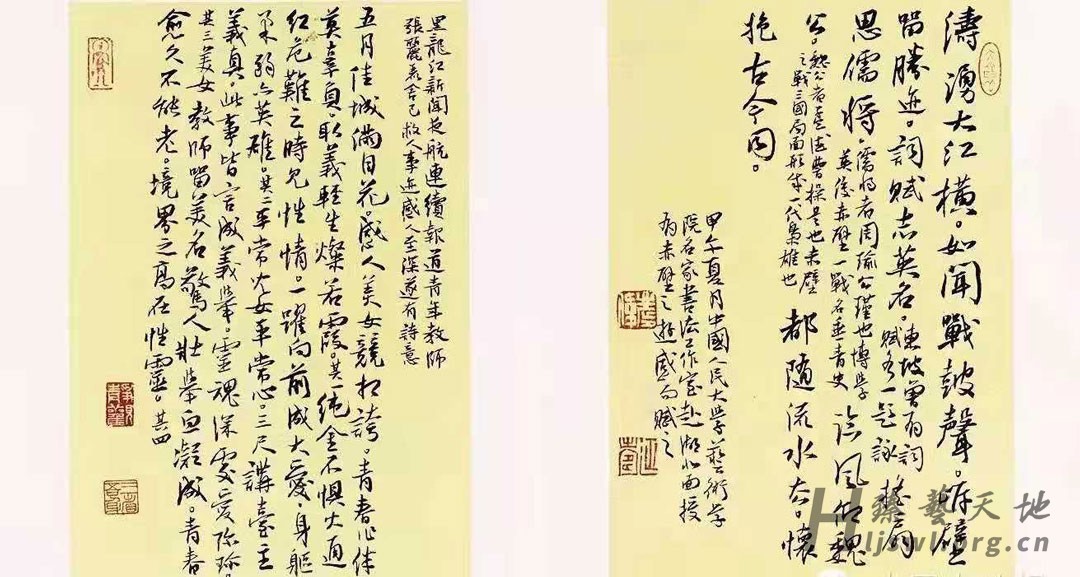 濤湧大江橫。如聞戰鼓聲。斷壁
留勝迹。詞賦志英名。東坡曾有詞賦各一題詠 搖扇
思儒將。儒將者周瑜公瑾也博學英俊赤壁一戰名垂青史 論風仰魏
公。魏公者孟德曹操是也赤壁之戰三國局面形成一代梟雄也 都随流水去。懷
抱古今同。
甲午夏月中國人民大學藝術學
院名家書法工作室赴湖北面授
有赤壁之遊感而賦之
黑龍江新聞夜航連續報道青年教師
張麗莉舍己救人事迹感人至深遂有詩意
五月佳城滿目花。感人美女競相誇。青春心体
莫辜負。取義輕生燦若霞。其一 純金不惧火通
紅危難之時見性情。一躍向前成大愛。身軀
柔弱亦英雄。其二 平常少女平常心。三尺講臺主
義真。此事皆言成義舉。靈魂深處愛
其三 美女教師留美名。驚人壯舉血凝成。青春
愈久不能老。境界之高在性靈。其四
臻藝天地
Hljswh.org.cn